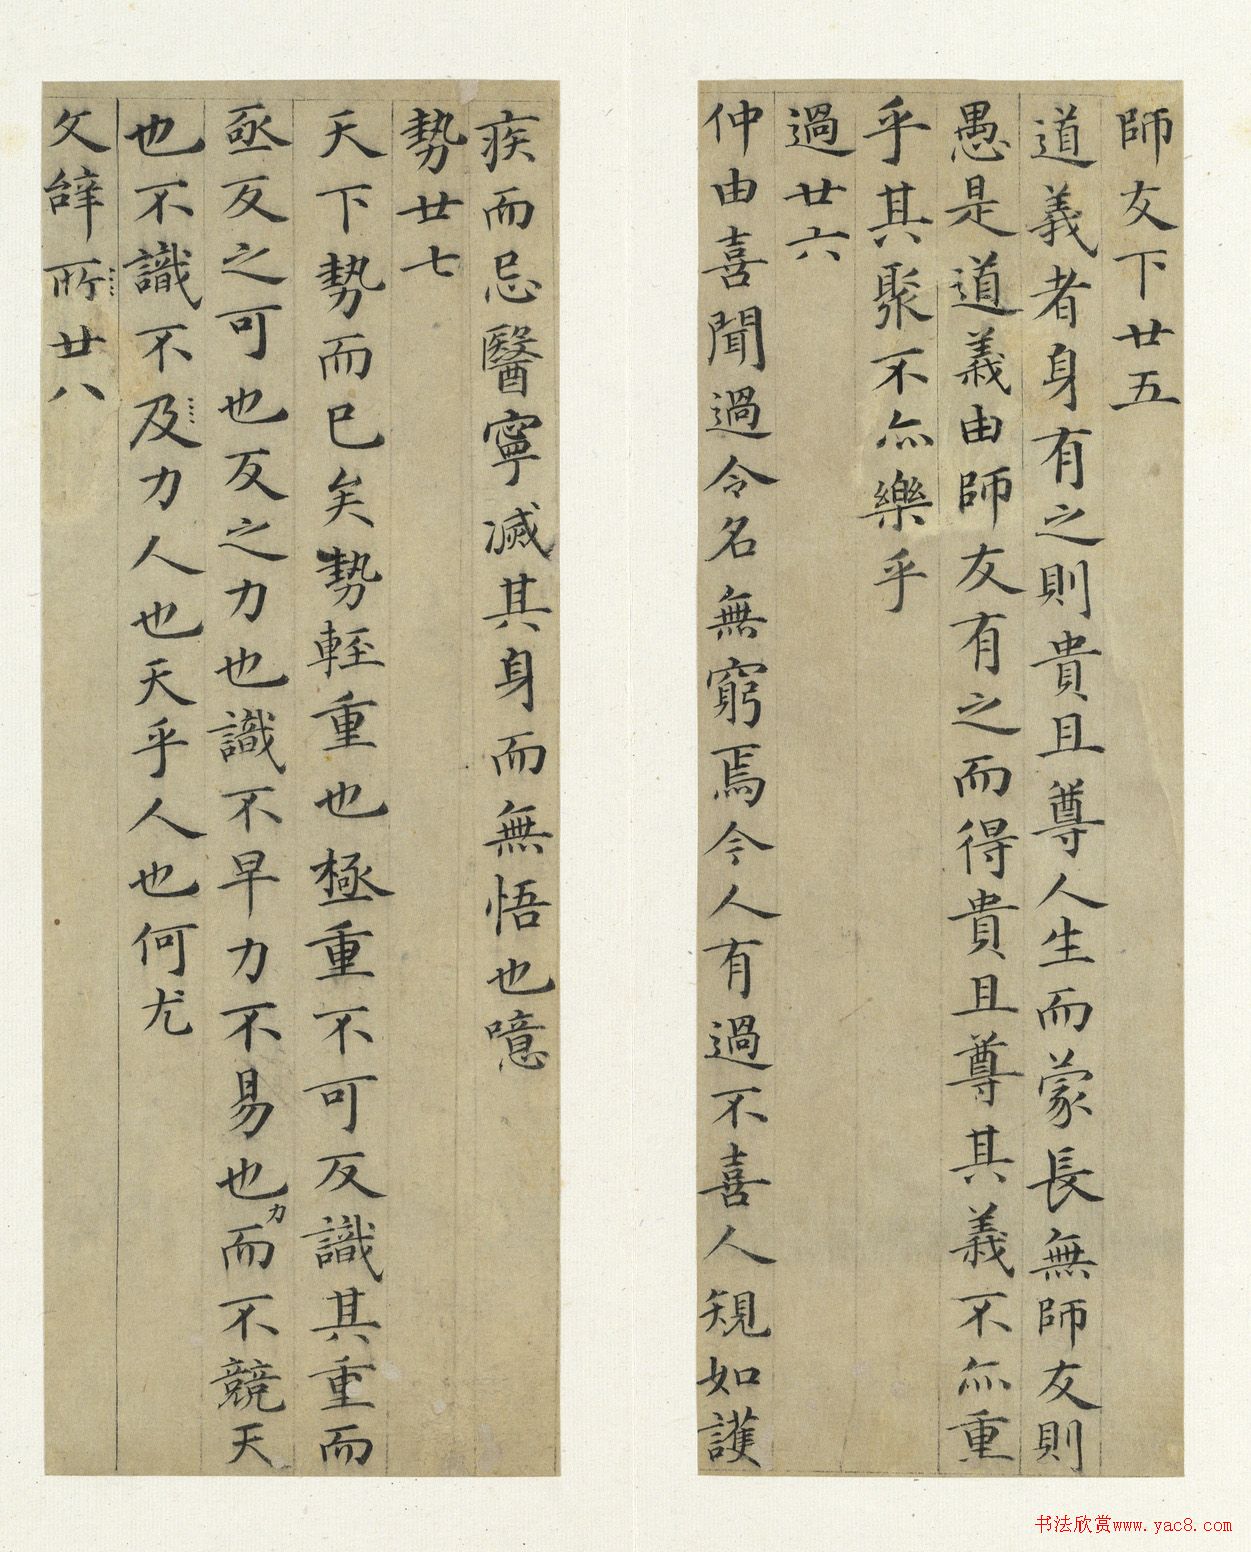 師友下廿五
道義者身有之則貴且尊人生而蒙長無師友則
愚是道義由師友有之而得貴且尊其義不亦重
乎其聚不亦樂乎
過廿六
仲由喜聞過令名無窮焉今人有過不喜人規如護
疾而忌醫寧滅其身而無悟也噫
勢廿七
天下勢而已矣勢輕重也極重不可反識其重而
亟反之可也反之力也識不早力不易也力而不競天
也不識不及力人也天乎人也何尤
文辭所廿八
书法欣赏www.yac8.com